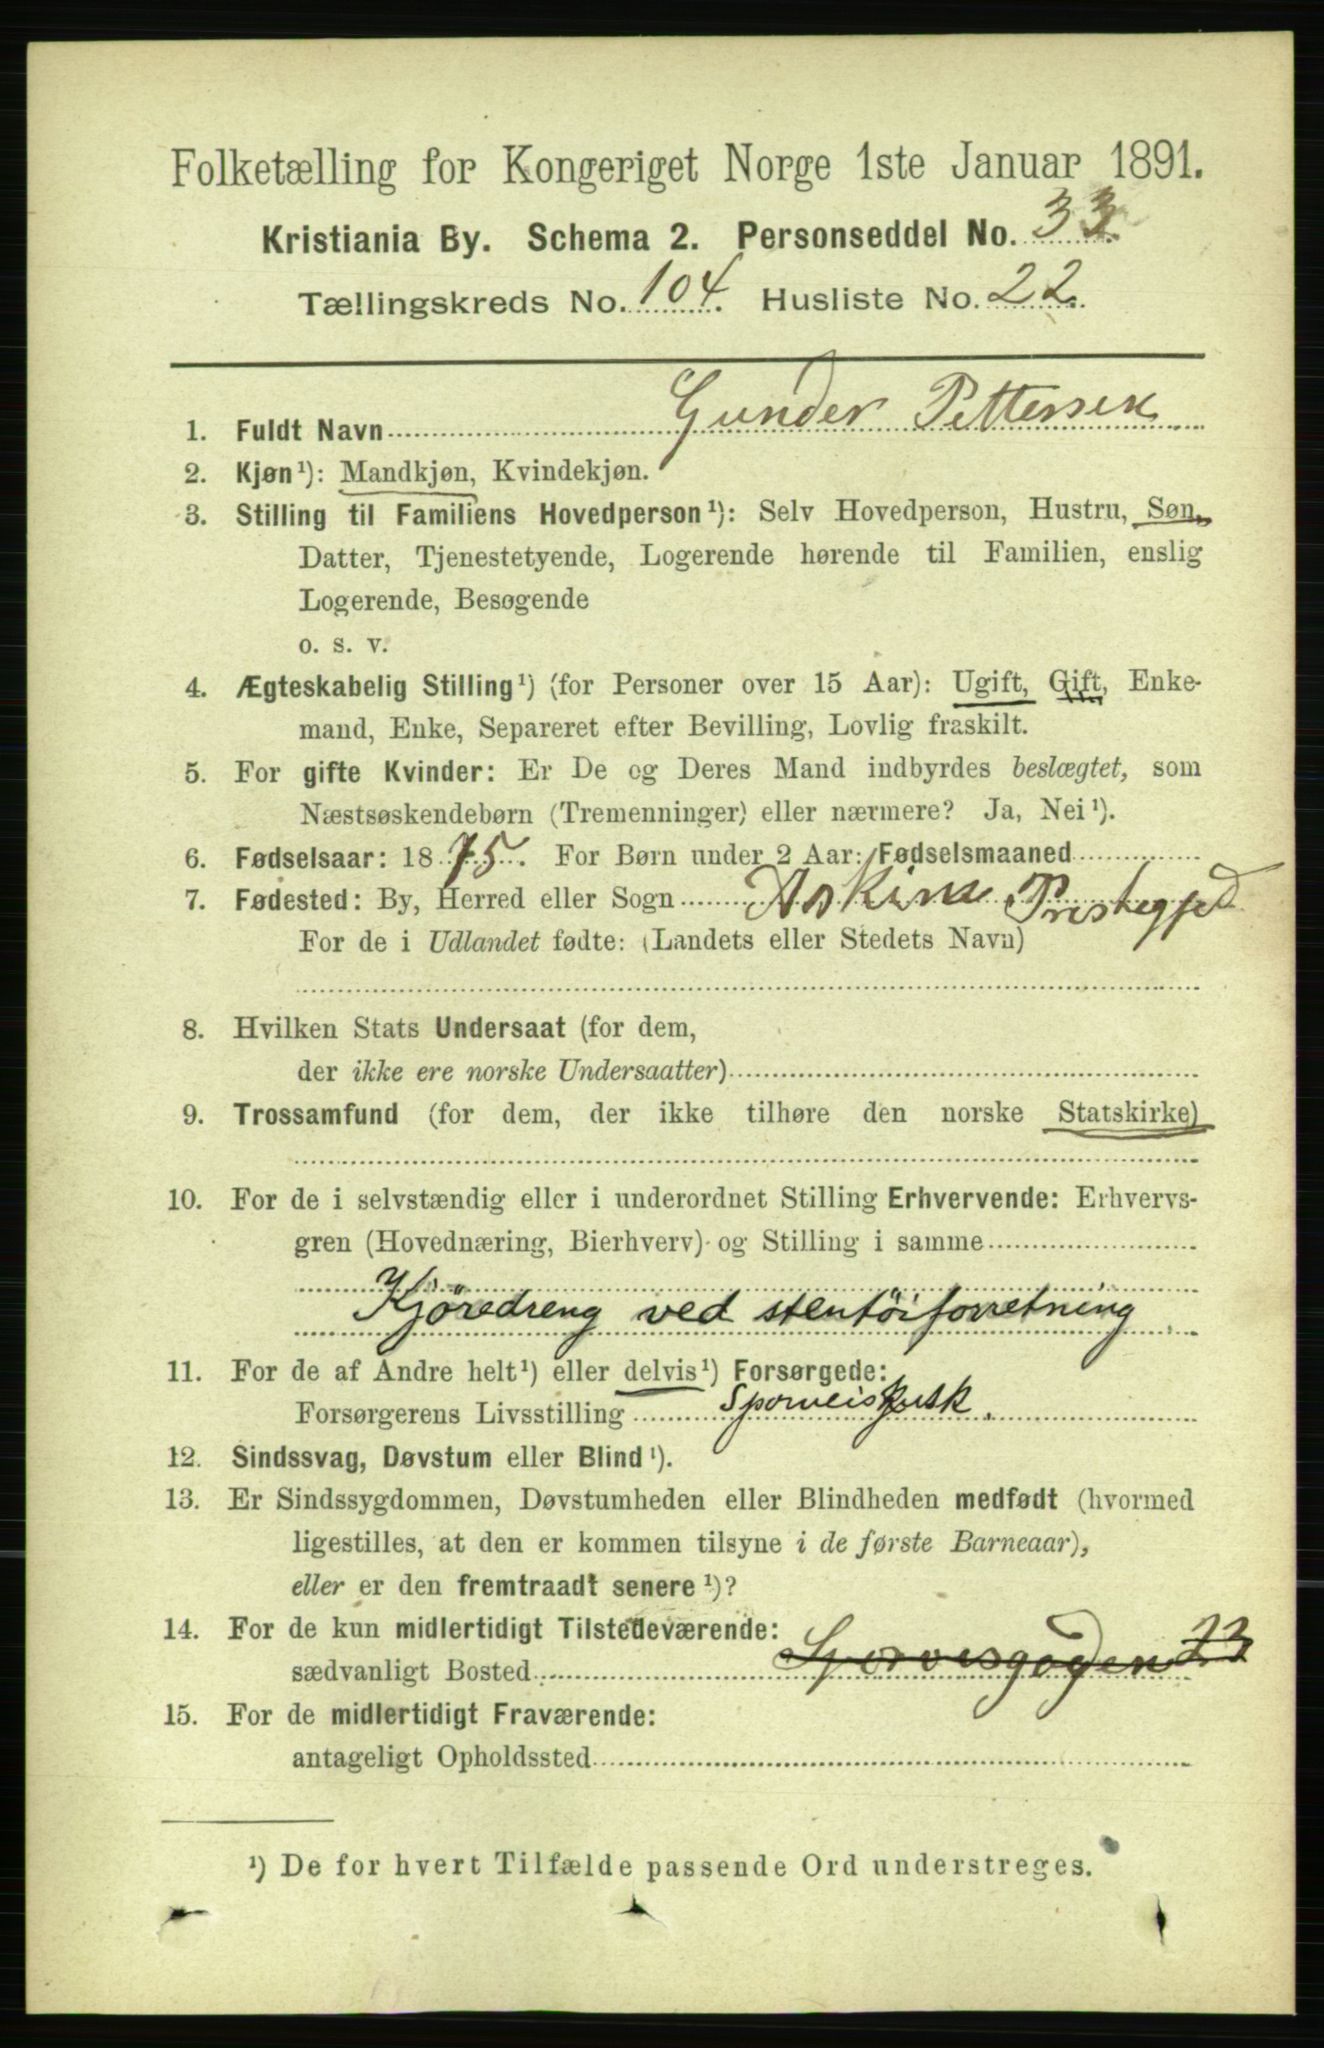 Folketælling for Kongeriget Norge 1ste Januar 1891.
Kristiania By. Schema 2. Personseddel No. 33
Tællingskreds No. 104. Husliste No. 22.
1. Fuldt Navn Gunder Pettersen
2. Kjøn¹): Mandkjøn, Kvindekjøn.
3. Stilling til Familiens Hovedperson¹): Selv Hovedperson, Hustru, Søn,
Datter, Tjenestetyende, Logerende hørende til Familien, enslig
Logerende, Besøgende
o. s. v.
4. Ægteskabelig Stilling¹) (for Personer over 15 Aar): Ugift, Gift, Enke-
mand, Enke, Separeret efter Bevilling, Lovlig fraskilt.
5. For gifte Kvinder: Er De og Deres Mand indbyrdes beslægtet, som
Næstsøskendebørn (Tremenninger) eller nærmere? Ja, Nei¹).
6. Fødselsaar: 1875. For Børn under 2 Aar: Fødselsmaaned
7. Fødested: By, Herred eller Sogn Askims Prestegjed
For de i Udlandet fødte: (Landets eller Stedets Navn)
8. Hvilken Stats Undersaat (for dem,
der ikke ere norske Undersaatter)
9. Trossamfund (for dem, der ikke tilhøre den norske Statskirke)
10. For de i selvstændig eller i underordnet Stilling Erhvervende: Erhvervs-
gren (Hovednæring, Bierhverv) og Stilling i samme
Kjøredreng ved stentöiforretning
11. For de af Andre helt¹) eller delvis¹) Forsørgede:
Forsørgerens Livsstilling Sporveiskusk.
12. Sindssvag, Døvstum eller Blind¹).
13. Er Sindssygdommen, Døvstumheden eller Blindheden medfødt (hvormed
ligestilles, at den er kommen tilsyne i de første Barneaar),
eller er den fremtraadt senere¹)?
14. For de kun midlertidigt Tilstedeværende:
sædvanligt Bosted Sporvesgaden 23
15. For de midlertidigt Fraværende:
antageligt Opholdssted
¹) De for hvert Tilfælde passende Ord understreges.